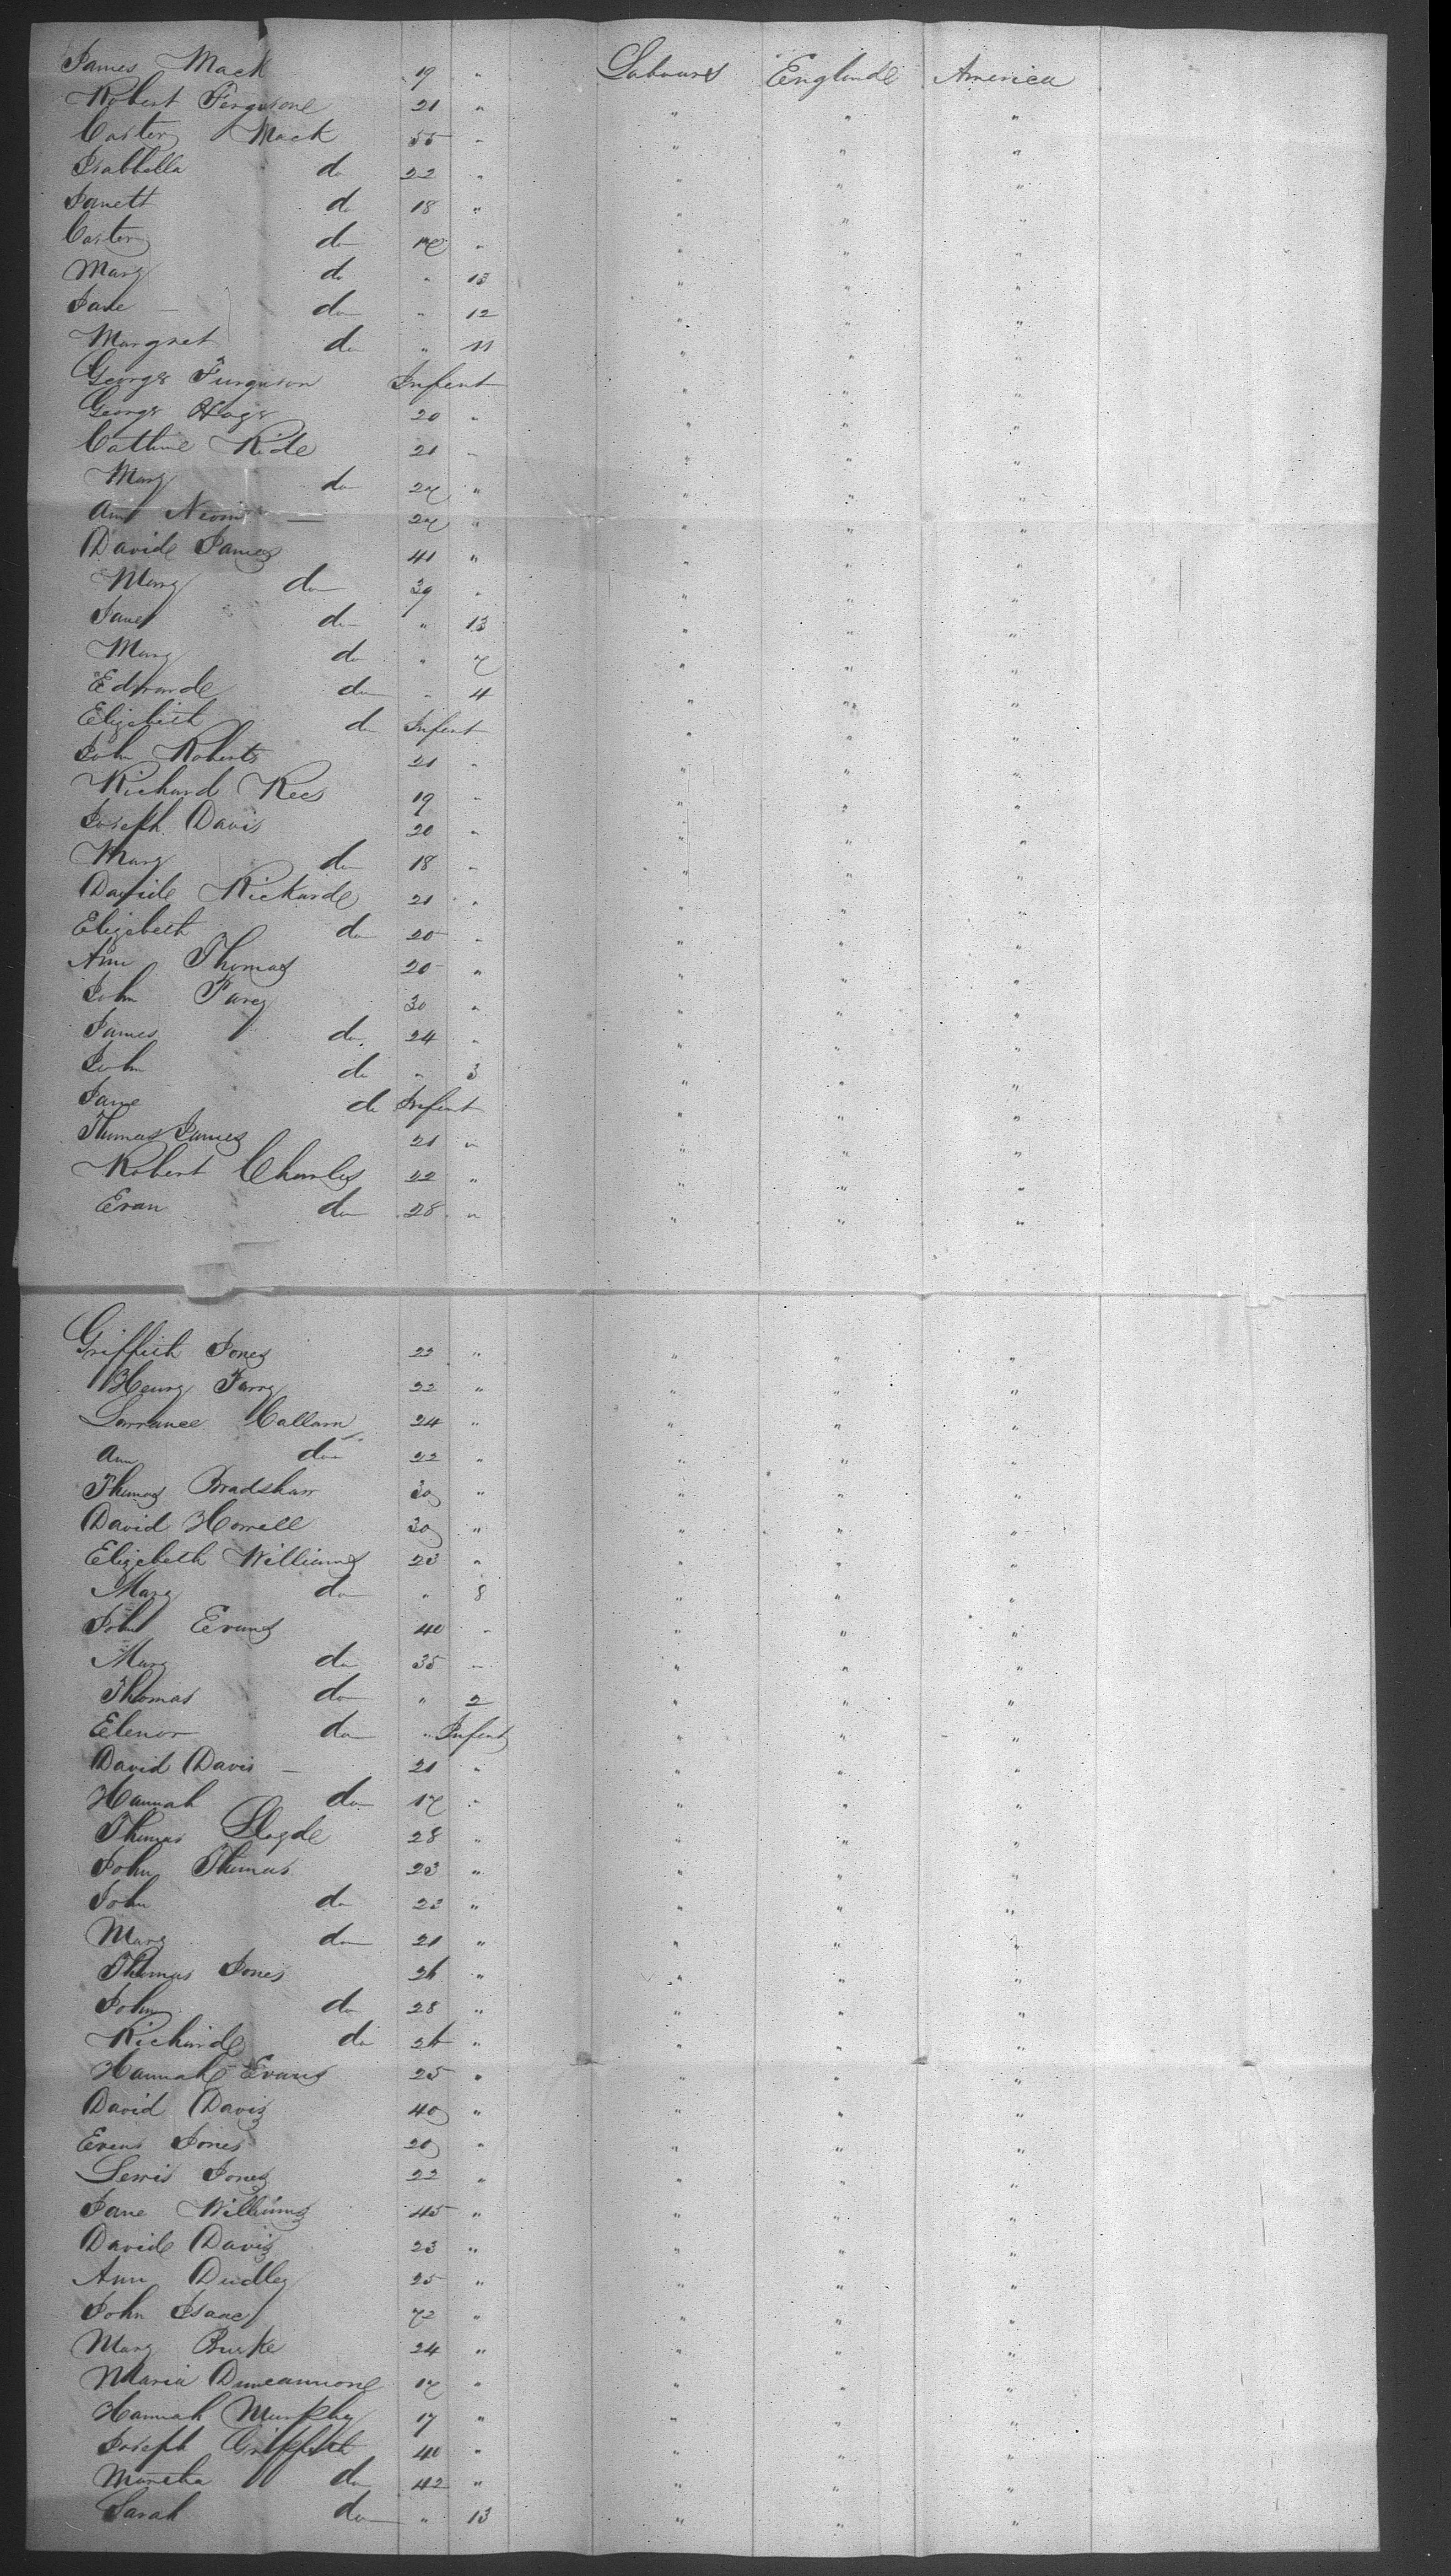 James Mack 19 " Labourer Englande America
Robert Fergusone 21 " " " "
Caster Mack 55 " " " "
Isabbella do 22 " " " "
Janett do 18 " " " "
Caster do 17 " " " "
Mary do " 13 " " "
Jane do " 12 " " "
Margret do " 11 " " "
George Furguson Infent " " "
George 20 " " " "
Cathine Ride 21 " " " "
Mary do 27 " " " "
Ann 27 " " " "
Davide James 41 " " " "
Mary do 39 " " " "
James do " 13 " " "
Mary do " 7 " " "
Edwarde do " 4 " " "
Elizebeth do Infent " " "
John Roberts 21 " " " "
Richard Rees 19 " " " "
Joseph Davis 20 " " " "
Mary do 18 " " " "
Davide Rickarde 21 " " " "
Elizebeth do 20 " " " "
Ann Thomas 20 " " " "
John 30 " " " "
James do 24 " " " "
John do " 3 " " "
Jane do Infent " " "
Thomas James 21 " " " "
Robert Charles 22 " " " "
Evan do 28 " " " "
Griffith Jones 22 " " " "
Henry Parry 22 " " " "
Larrance Callam 24 " " " "
Ann do 22 " " " "
Thomas Bradshaw 30 " " " "
David Howell 30 " " " "
Elizebeth Williams 23 " " " "
Mary do " 8 " " "
John Evans 40 " " " "
Mary do 35 " " " "
Thomas do " 2 " " "
Elenor do " Infent " " "
David Davis 21 " " " "
Hannah do 17 " " " "
Thomas Lloyde 28 " " " "
John Thomas 23 " " " "
John do 23 " " " "
Mary do 21 " " " "
Thomas Jones 26 " " " "
John do 28 " " " "
Richarde do 26 " " " "
Hannah Evans 25 " " " "
David Davis 40 " " " "
Evens Jones 20 " " " "
Lewis Jones 22 " " " "
Jane Williams 45 " " " "
Davide Davis 23 " " " "
Ann Dudley 25 " " " "
John Isaac 72 " " " "
Mary Burke 24 " " " "
Maria Duncannone 17 " " " "
Hannah Murphy 17 " " " "
Joseph Griffith 40 " " " "
Martha do 42 " " " "
Sarah do " 13 " " "